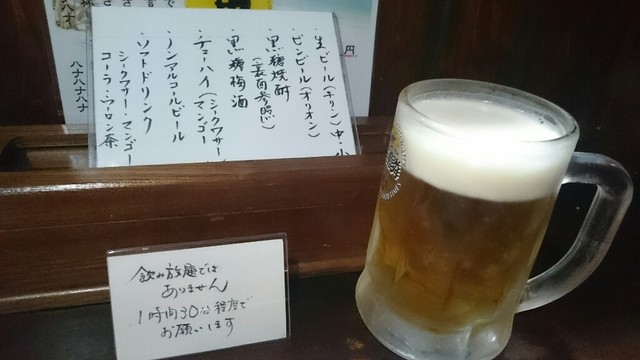 ・生ビール(キリン)中・小
・ビンビール(オリオン)
・黒糖焼酎
(裏面参照)
・黒糖梅酒
・チューハイ(シークワサー
マンゴー
・ノンアルコールビール
・ソフトドリンク
シークワサー・マンゴー
コーラ・ウーロン茶
円
ハナハナハナ
飲み放題では
ありません
1時間30分程度で
お願いします